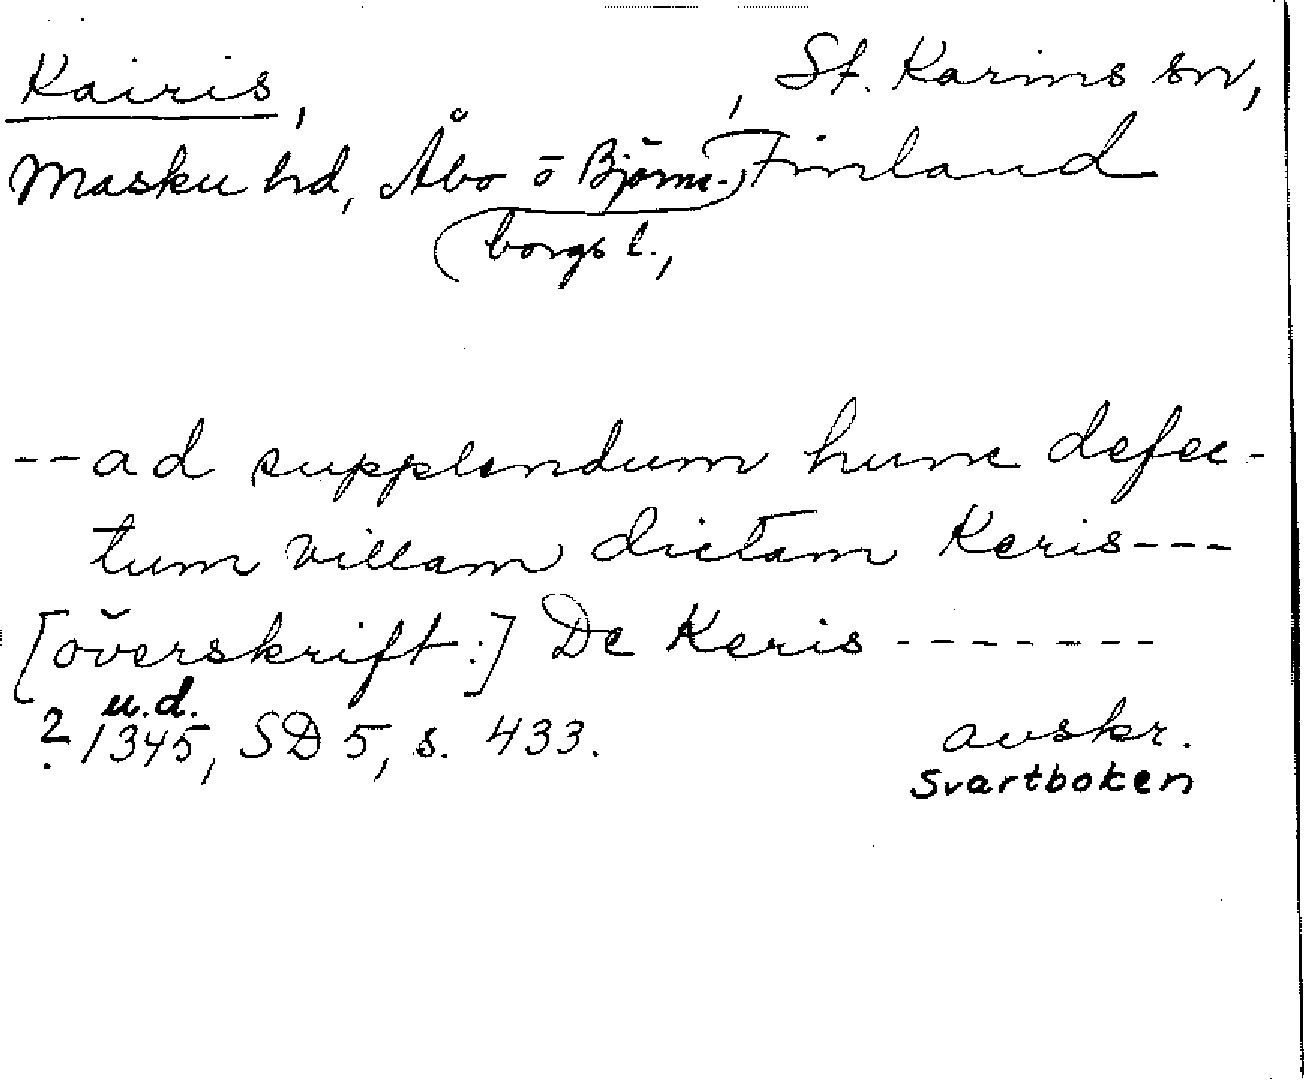 Kairis, , St. Karins sn,
Masku hd, Åbo o Björne-, Finland
borgs l.,
-- ad supplendum hunc defec-
tum villam dictam Keris ---
[överskrift:] De Keris -------
u.d.
? 1345, SD 5, s. 433. avskr.
Svartboken